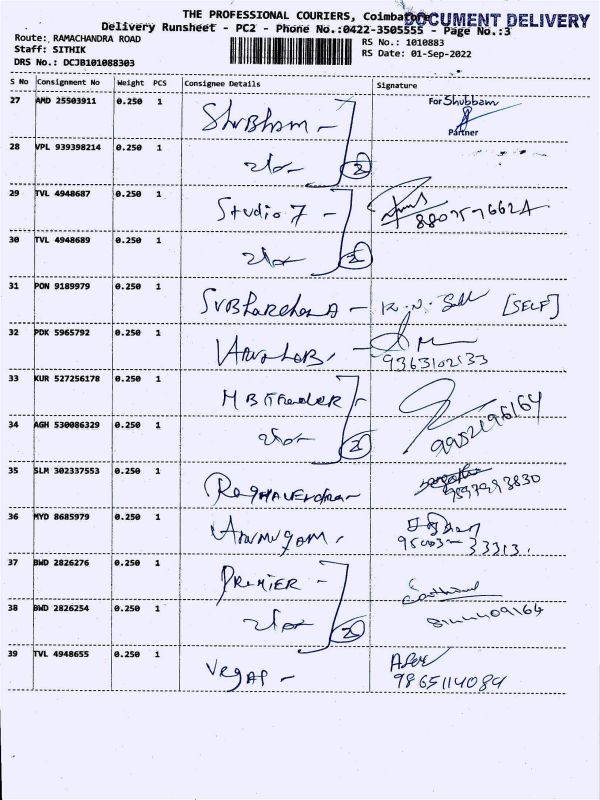 THE PROFESSIONAL COURIERS, Coimbatore
DOCUMENT DELIVERY
Delivery Runsheet - PC2 - Phone No.:0422-3505555 - Page No.:3
Route: RAMACHANDRA ROAD
RS No.: 1010883
Staff: SITHIK
RS Date: 01-Sep-2022
DRS No.: DCJB101088303
S No Consignment No Weight PCS Consignee Details Signature
27 AMD 25503911 0.250 1 Shubham - For Shubbam
Partner
28 VPL 939398214 0.250 1 2
29 TVL 4948687 0.250 1 Studio 7 -
30 TVL 4948689 0.250 1 2
31 PON 9189979 0.250 1 [SELF]
32 PDK 5965792 0.250 1 9363102533
33 KUR 527256178 0.250 1 M B Traeder -
34 AGH 530086329 0.250 1 2 9952196164
35 SLM 302337553 0.250 1 Raghavendra -
36 MYD 8685979 0.250 1 Arumugam
37 BWD 2826276 0.250 1 PREMIER -
38 BWD 2826254 0.250 1 2 8144409164
39 TVL 4948655 0.250 1 Vegas -
9865114084